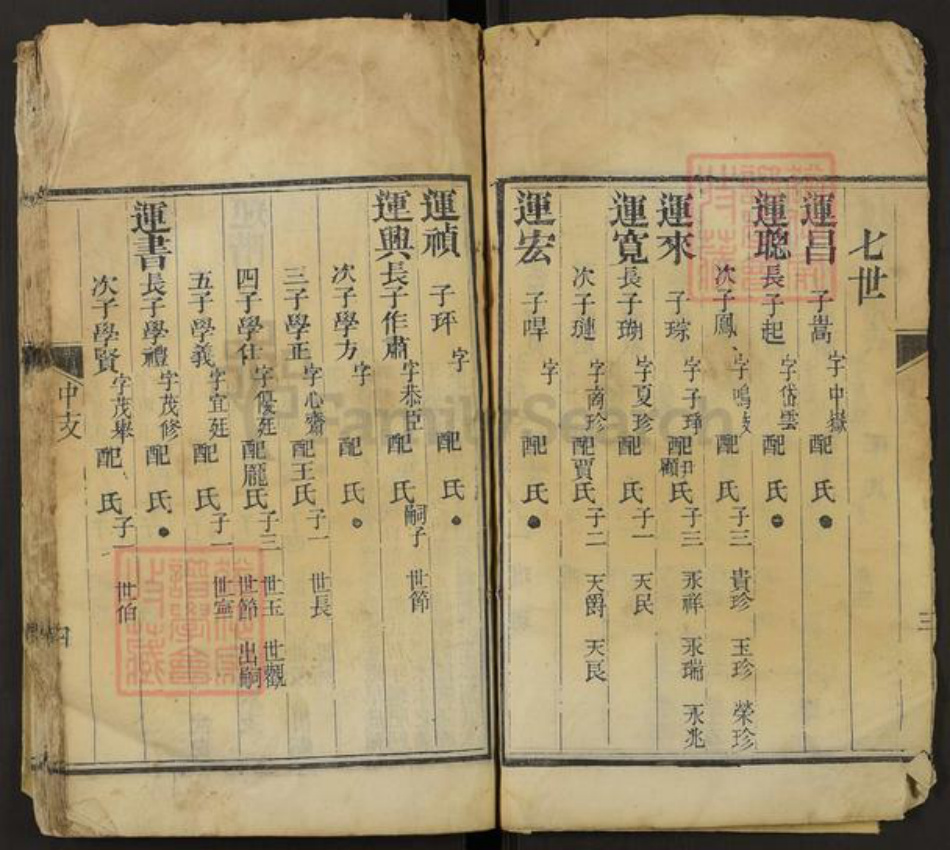 七世
運昌 子嵩 字中嶽 配 氏
運聰 長子起 字岱雲 配 氏
次子鳳 字鳴歧 配 氏 子三 貴珍 玉珍 榮珍
運來 子琮 字子琤 配 顧 氏 子三 永祥 永瑞 永兆
運寬 長子瑚 字夏珍 配 氏 子一 天民
次子璉 字商珍 配賈氏 子二 天爵 天良
運宏 子㖔 字 配 氏
運禎 子玶 字 配 氏
運興 長子作肅 字恭臣 配 氏 嗣子 世節
次子學方 字 配 氏
三子學正 字心齋 配王氏 子一 世長
四子學仕 字優廷 配龐氏 子三 世玉 世觀 世節 出嗣
五子學義 字宜廷 配 氏 子一 世寧
運書 長子學禮 字茂修 配 氏
次子學賢 字茂舉 配 氏 子一 世伯
中支
三
四
FamilySearch